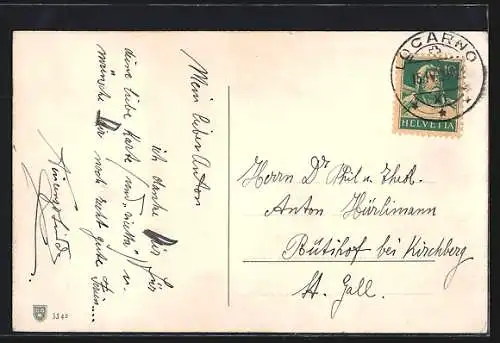 Mein lieber Anton
ich danke Dir für
deine liebe Karte (und "netta") u.
wünsche Dir noch recht gute
Herrn Dr Phil u. Theol.
Anton Hürlimann
Bütihof bei Kirchberg
St. Gall.
LOCARNO
10
HELVETIA